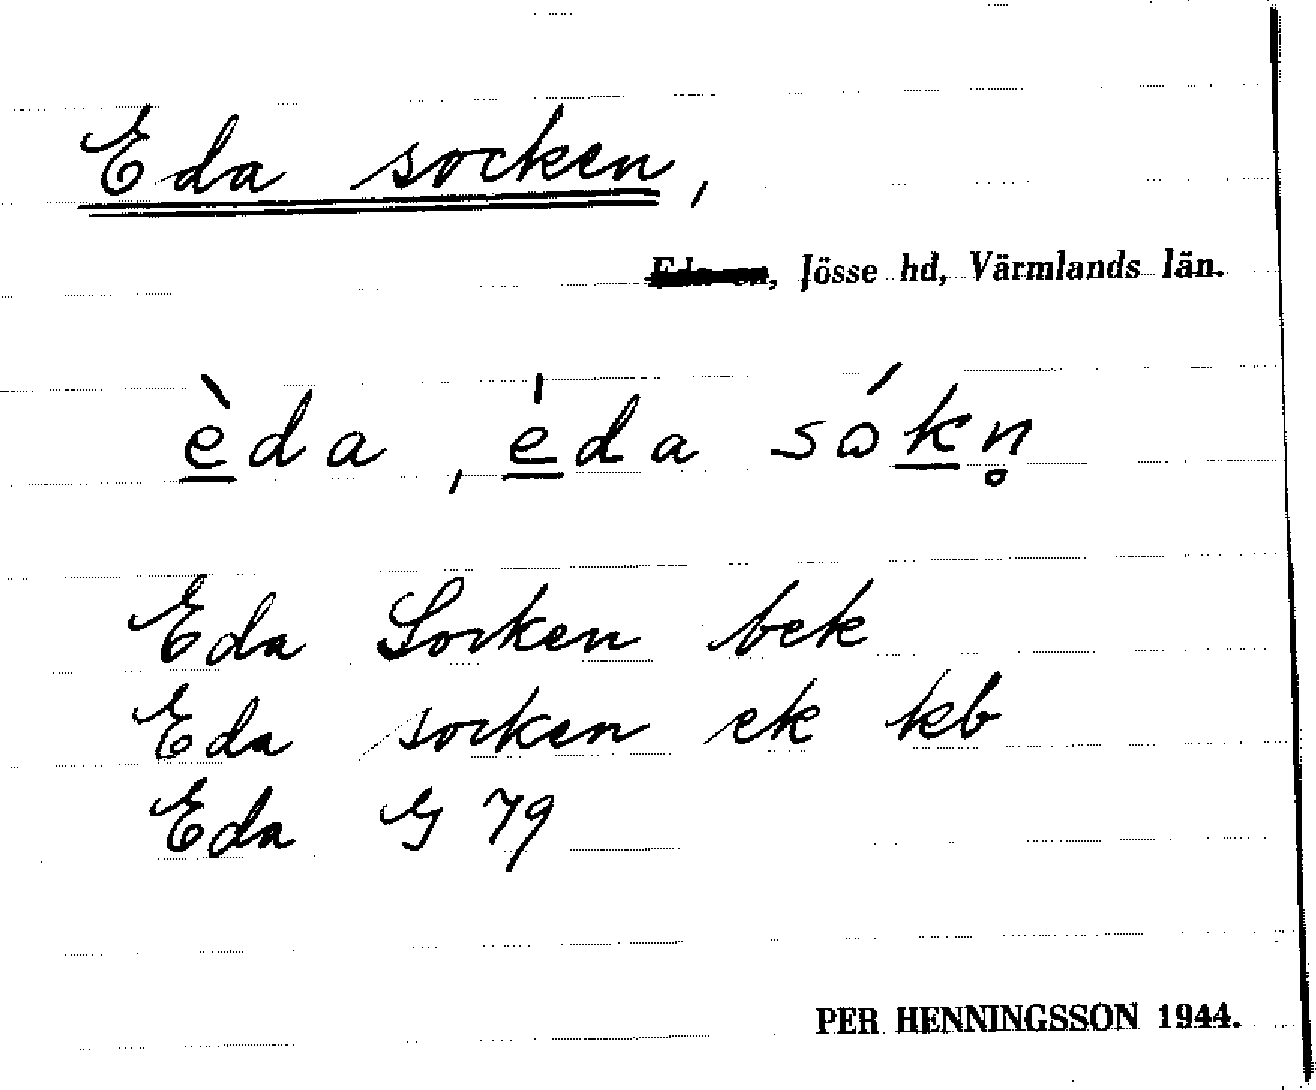 Eda socken,
Eda sn, Jösse hd, Värmlands län.
èda, e̍da sókn̥
Eda Socken bek
Eda socken ek kb
Eda G 79
PER HENNINGSSON 1944.